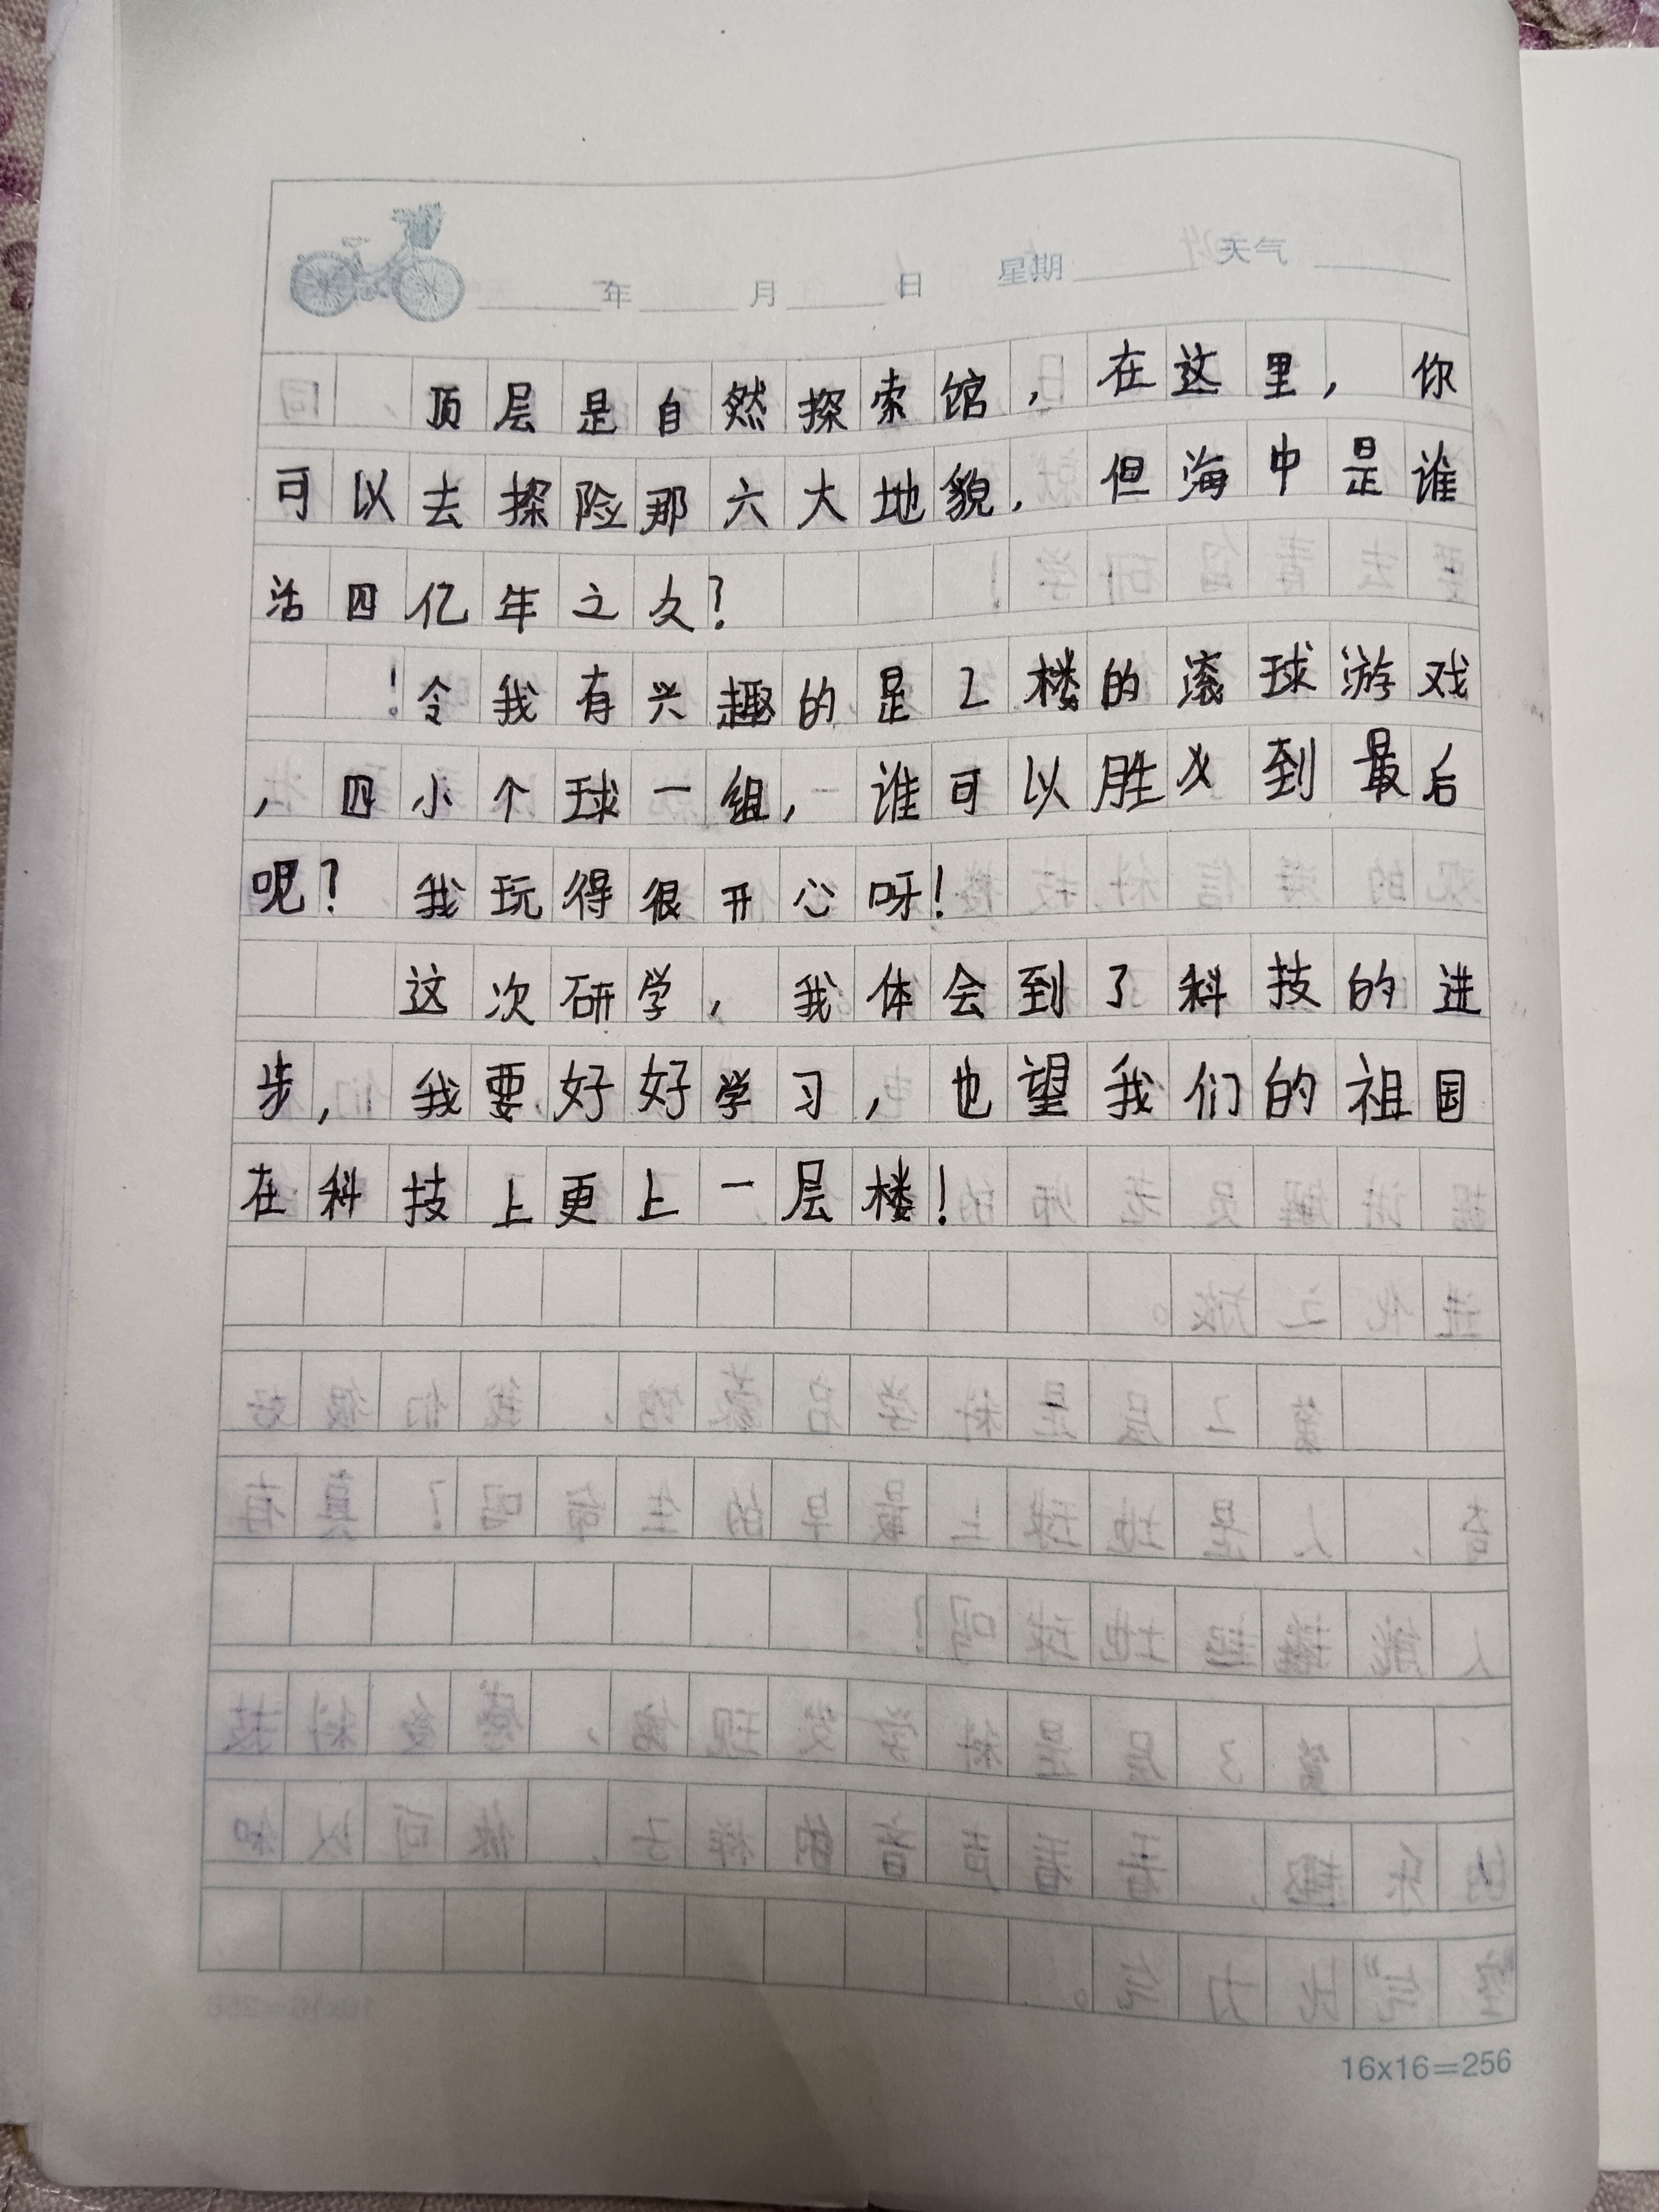 年 月 日 星期 天气
顶层是自然探索馆，在这里，你
可以去探险那六大地貌，但海中是谁
活四亿年之久？
令我有兴趣的是2楼的滚球游戏
，四小个球一组，谁可以胜 到最后
呢？我玩得很开心呀！
这次研学，我体会到了科技的进
步，我要好好学习，也望我们的祖国
在科技上更上一层楼！
16x16=256